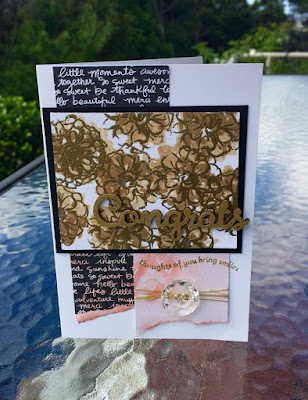 little moments awesome
together so sweet merci
so sweet be thankful
hello beautiful merci
Congrats
thoughts of you bring smiles
merci inspire
and sunshine
hello
life little
adventure